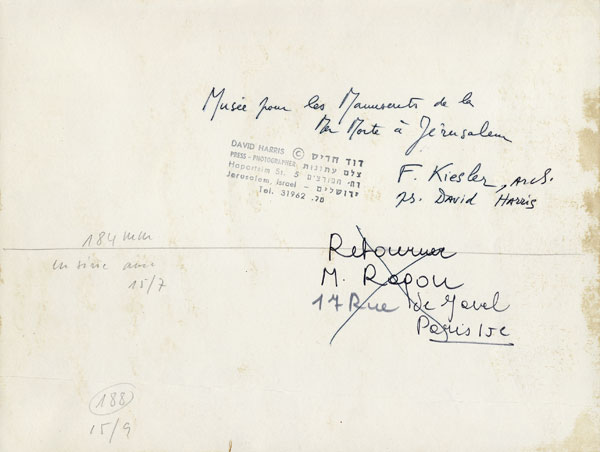 Musée pour les Manuscrits de la
Mer Morte à Jérusalem
DAVID HARRIS © דוד חריש
PRESS - PHOTOGRAPHER צלם עתונות
Haportsim St. 5 רח׳ הפורצים
Jerusalem, Israel – ירושלים
Tel. 31962 .טל
F. Kiesler, Arch.
ps. David Harris
Retourner
M. Ragon
17 Rue de Javel
Paris 15e
184 mm
en série avec
15/7
188
15/9